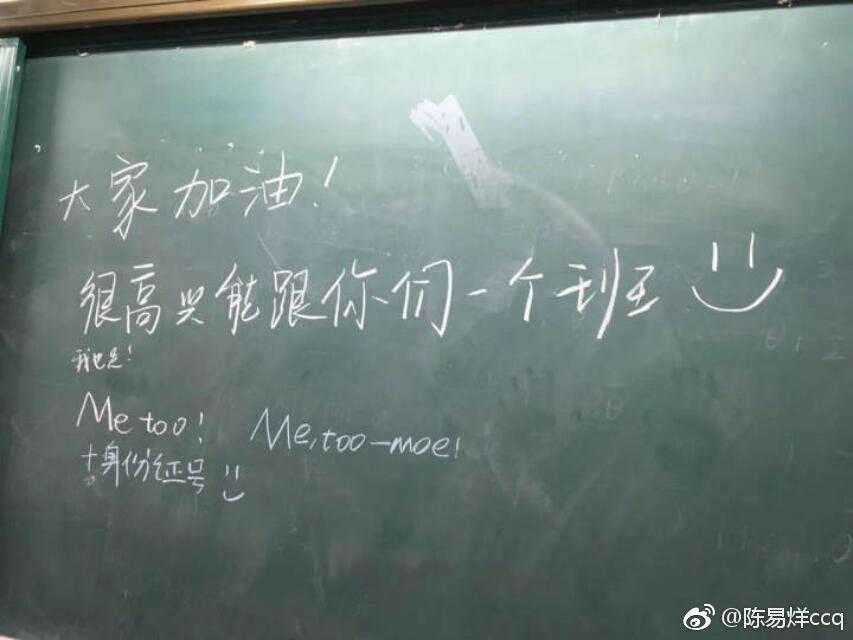 大家加油!
很高兴能跟你们一个班
我也是!
Me too!
Me,too-moe!
+身份证号
@陈易烊ccq